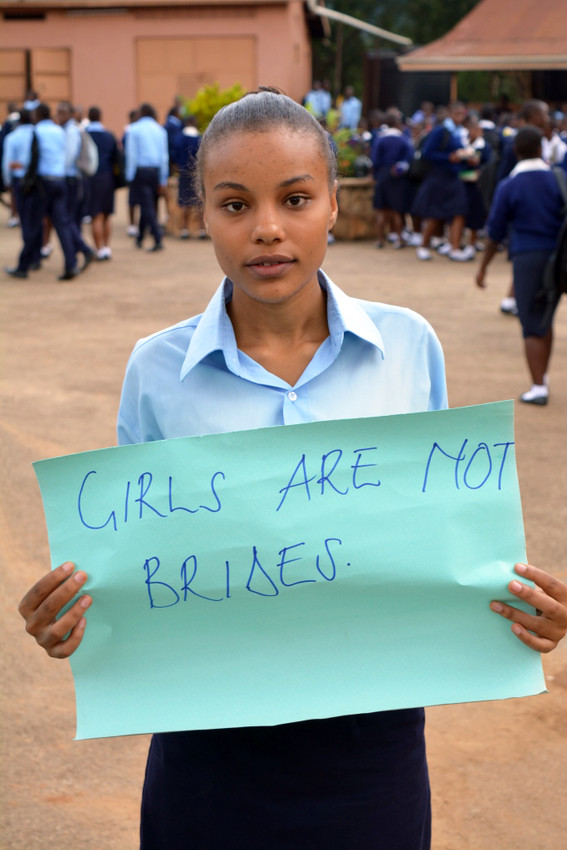 GIRLS ARE NOT
BRIDES.